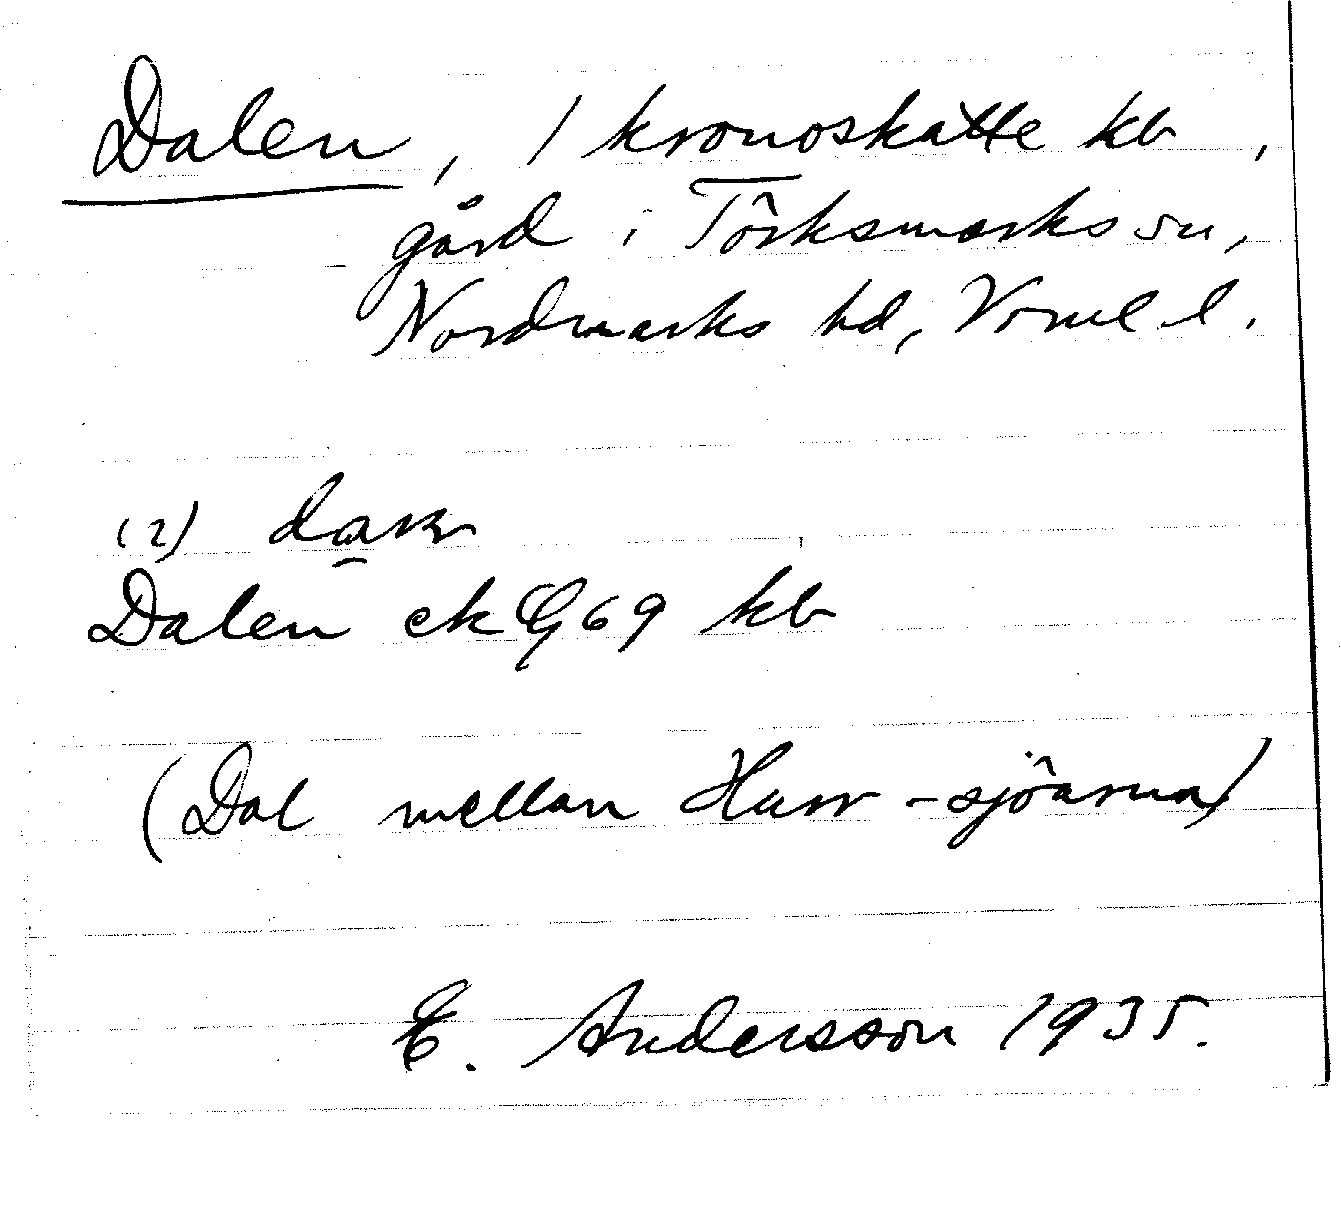 Dalen, 1 kronoskatte kb,
gård i Törksmarks sn,
Nordmarks hd, Vrml l.
(2)
Dalen ek G 69 kb
(Dal mellan Hurr-sjöarna)
E. Andersson 1935.